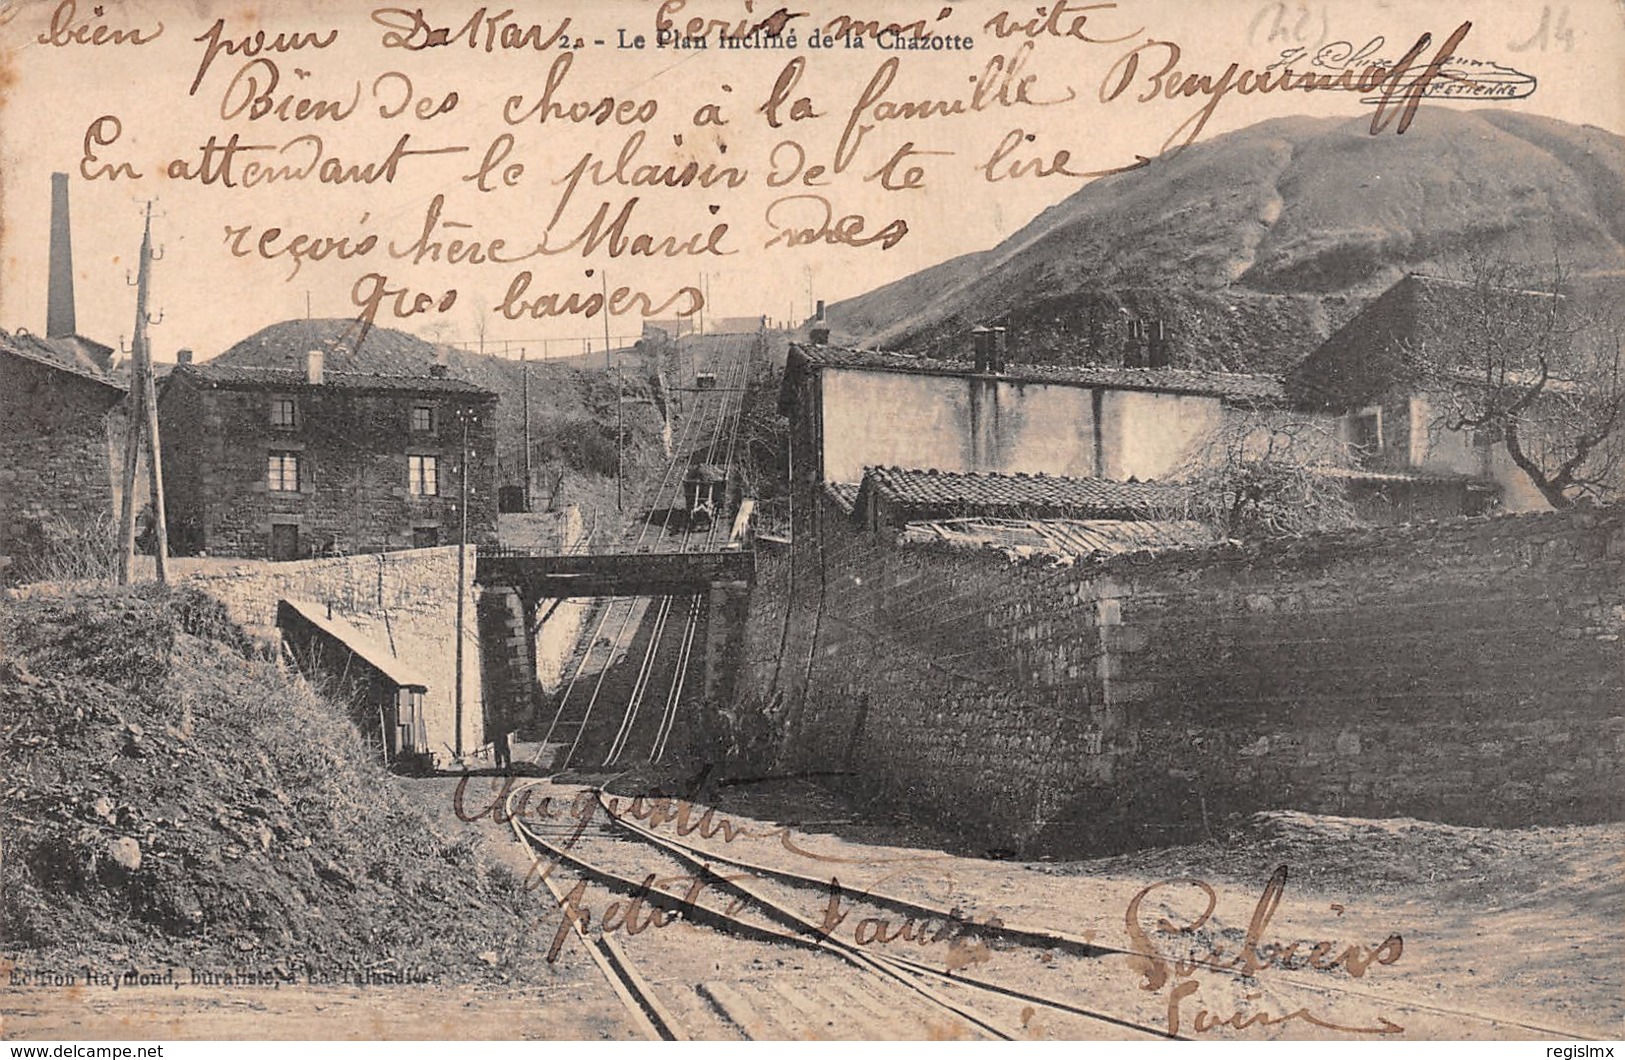 bien pour Dakar. Ecris moi vite
2. - Le Plan incliné de la Chazotte
Bien des choses à la famille
En attendant le plaisir de te lire
reçois chère Marie mes
gros baisers
Augustin
petit
Edition Raymond, buraliste, à La Talaudière
(42)
14
delcampe.net
regislmx